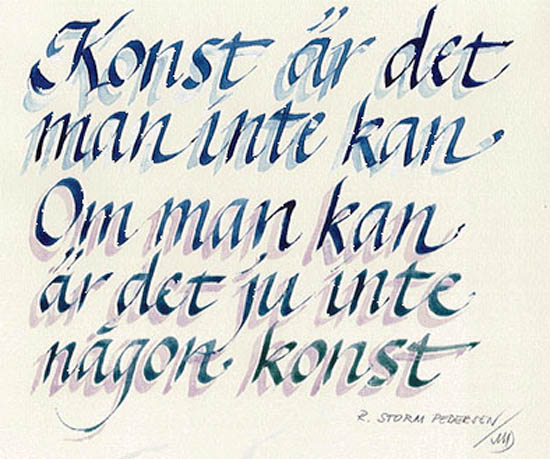 Konst är det
man inte kan.
Om man kan
är det ju inte
någon konst
R. STORM PEDERSEN